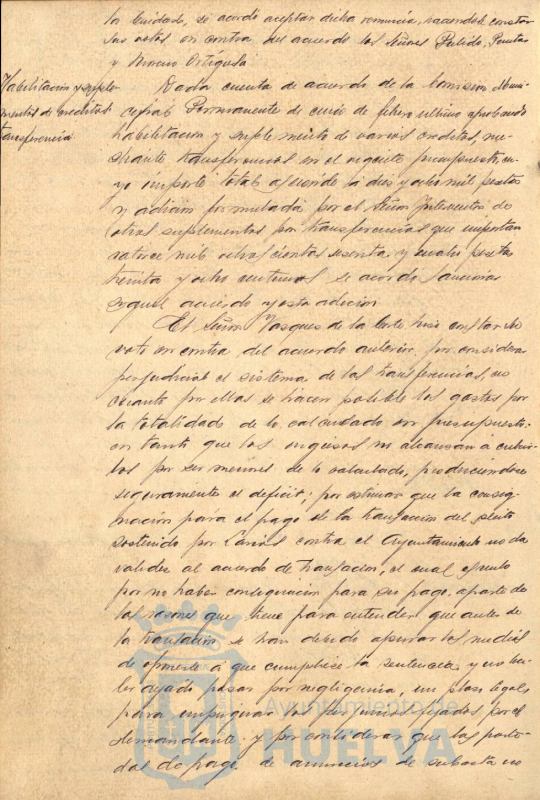 la Ciudad, se acordó aceptar dicha renuncia, haciendole constar
sus votos en contra del acuerdo los Señores Pulido,
y
Habilitacion y suple-
mentos de creditos
transferencia
Dada cuenta de acuerdo de la Comision Muni-
cipal Permanente de cinco de febrero ultimo aprobando
habilitacion y suplemento de varios creditos, me-
diante transferencias en el vigente presupuesto, cu-
yo importe total asciende a diez y ocho mil pesetas
y adicion formulada por el Señor Interventor de
otros suplementos por transferencias que importan
catorce mil ochocientas sesenta y cuatro pesetas
treinta y ocho centimos se acordó sancionar
aquel acuerdo y esta adicion
El Señor Vazquez de la Corte hizo constar su
voto en contra del acuerdo anterior, por considerar
perjudicial el sistema de las transferencias, en
cuanto por ellas se hacen posible los gastos por
la totalidad de lo calculado en presupuesto,
en tanto que los ingresos no alcanzan a cubrir-
los por ser menores de lo calculado, produciendose
seguramente el deficit; por estimar que la consig-
nacion para el pago de la transaccion del pleito
sostenido por Larios contra el Ayuntamiento no da
validez al acuerdo de transaccion, el cual es nulo
por no haber consignacion para su pago, aparte de
las razones que tiene para entender que antes de
la transaccion se han debido apurar los medios
de oponerse á que cumpliese la sentencia, y no ha-
ber dejado pasar por negligencia, un plazo legal
para impugnar los perjuicios fijados por el
demandante y por considerar que las parti-
das de pago de anuncios de subasta no
Ayuntamiento de
HUELVA